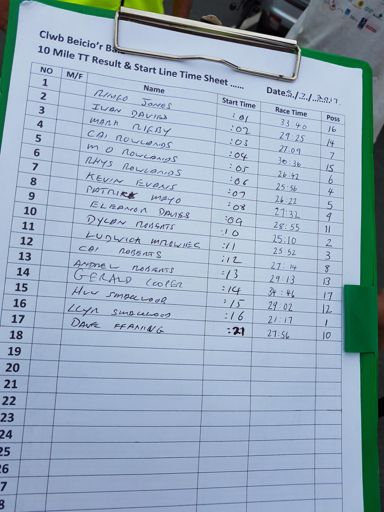 Clwb Beicio'r
10 Mile TT Result & Start Line Time Sheet ...... Date
NO M/F Name Start Time Race Time Poss
1 RINGO JONES :01 33 40 16
2 IWAN DAVIES :02 29 25 14
3 MARK RIGBY :03 27 09 7
4 CAI ROWLANDS :04 30:36 15
5 M O ROWLANDS :05 26:42 6
6 RHYS ROWLANDS :06 25:56 4
7 KEVIN EVANS :07 26 22 5
8 PATRICK MAYO :08 27:32 9
9 ELEANOR DAVIES :09 28:55 11
10 DYLAN ROBERTS :10 25:10 2
11 LUDWICK :11 25 52 3
12 CAI ROBERTS :12 27:14 8
13 ANDREW ROBERTS :13 29 13 13
14 GERALD COOPER :14 34:46 17
15 HUW SMALLWOOD :15 29:02 12
16 LLYR SMALLWOOD :16 21:17 1
17 DAVE :21 27:56 10
18
19
20
21
22
23
24
25
26
7
8